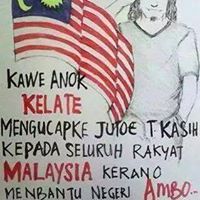 KAWE ANOK
KELATE
MENGUCAPKE JUTOE T.KASIH
KEPADA SELURUH RAKYAT
MALAYSIA KERANO
MENBANTU NEGERI AMBO..